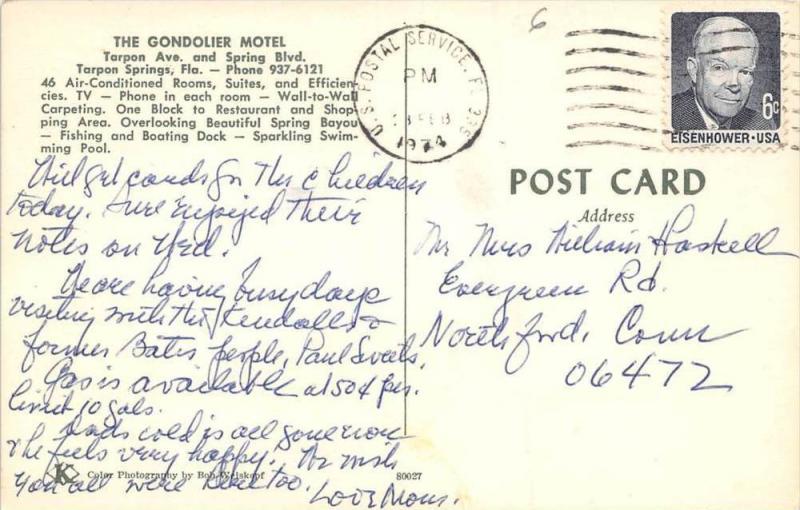 THE GONDOLIER MOTEL
Tarpon Ave. and Spring Blvd.
Tarpon Springs, Fla. — Phone 937-6121
46 Air-Conditioned Rooms, Suites, and Efficien-
cies. TV — Phone in each room — Wall-to-Wall
Carpeting. One Block to Restaurant and Shop-
ping Area. Overlooking Beautiful Spring Bayou
— Fishing and Boating Dock — Sparkling Swim-
ming Pool.
Will get cards for the children
today. Sure enjoyed their
notes on Wed.
We are having busy days
visiting with the Kendalls &
former Bates people, Paul
Gas is available at 50¢
limit 10 gals.
Dads cold is all gone now
& he feels very happy. We wish
you all were here too. Love Mom.
Color Photography by Bob Welskopf
80027
6
U.S. POSTAL SERVICE, FL 335
PM
FEB
1974
6c
EISENHOWER·USA
POST CARD
Address
Mr Mrs William Haskell
Evergreen Rd.
Northford, Conn
06472